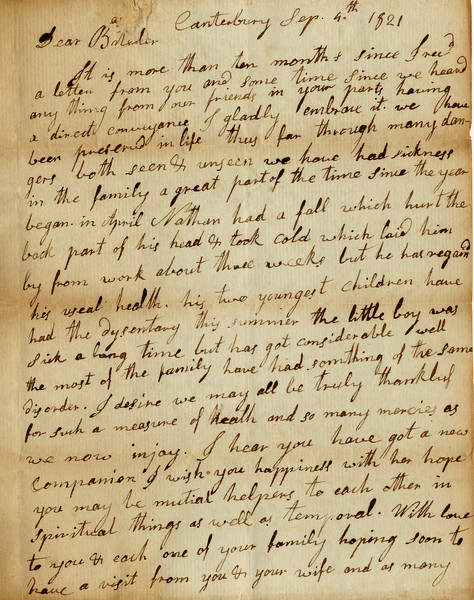 Canterbury Sep. 4.th 1821
Dear Brother
It is more than ten months since I recd
a letter from you and some time since we heard
any thing from our friends in your parts having
a direct conveyance I gladly embrace it. we have
been preserved in life thus far through many dan-
gers both seen & unseen we have had sickness
in the family a great part of the time since the year
began. in April Nathan had a fall which hurt the
back part of his head & took cold which laid him
by from work about three weeks but he has regaind
his useal health. his two youngest children have
had the dysentary this summer the little boy was
sick a long time but has got considerable well
the most of the family have had somthing of the same
disorder. I desire we may all be truly thankful
for such a measure of health and so many mercies as
we now injoy. I hear you have got a new
companion I wish you happiness with her hope
you may be mutial helpers to each other in
spiritual things as well as temporal. With love
to you & each one of your family hoping soon to
have a visit from you & your wife and as many